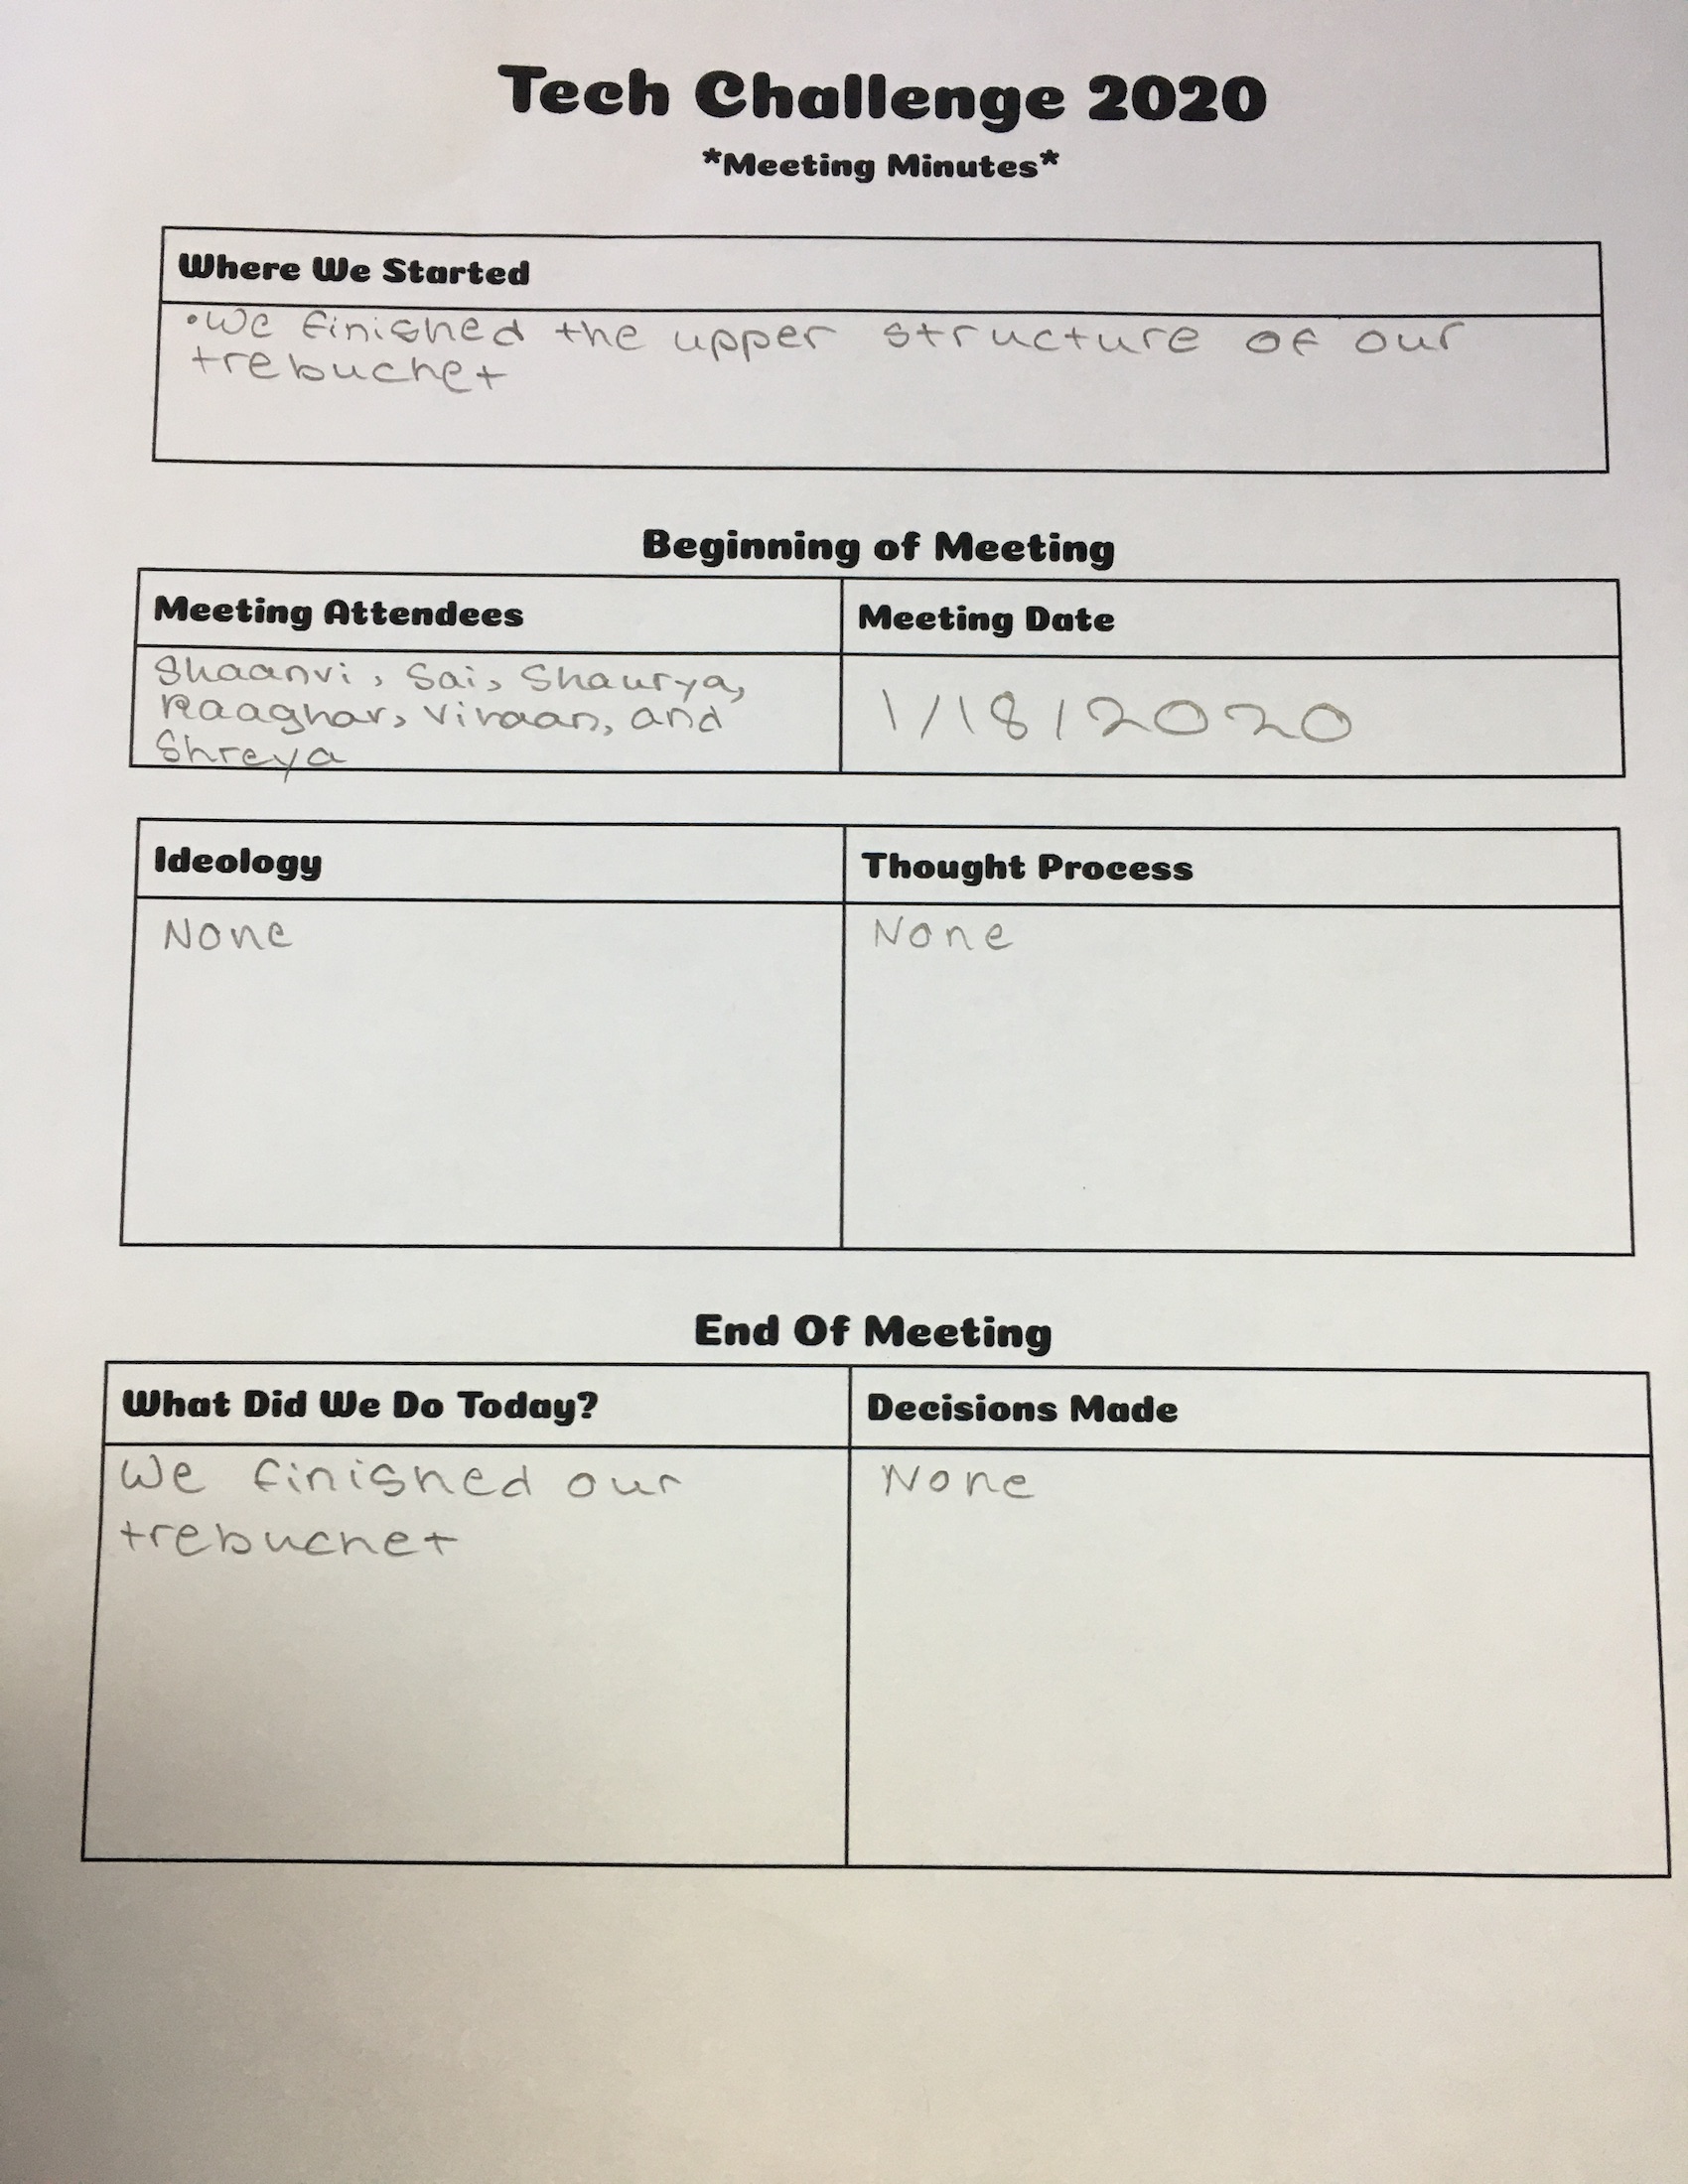 Tech Challenge 2020
*Meeting Minutes*
Where We Started
•We finished the upper structure of our
trebuchet
Beginning of Meeting
Meeting Attendees
Meeting Date
Shaanvi, Sai, Shaurya,
Raaghav, Vihaan, and
Shreya
1/18/2020
Ideology
Thought Process
None
None
End Of Meeting
What Did We Do Today?
Decisions Made
We finished our
trebuchet
None